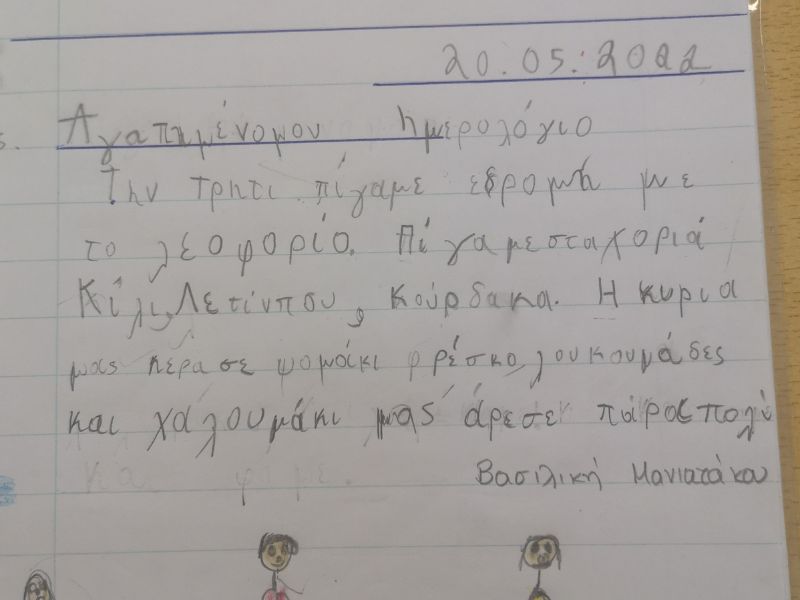 20.05.2022
Αγαπημένομου ημερολόγιο
Την τρητι πίγαμε εδρομή με
το λεοφορίο. Πίγαμεσταχοριά
Κίλι, Λετίνπου, κούρδακα. Η κυρια
μας κέρασε ψομάκι φρέσκο, λουκουμάδες
και χάλουμάκι μας άρεσε πάραπολύ
Βασιλική Μανιατάκου